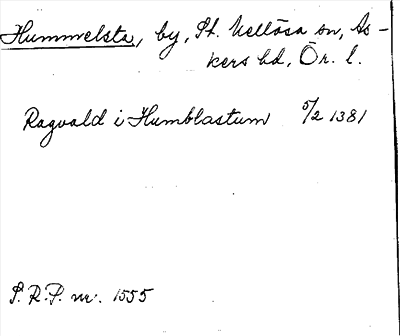 Hummelsta, by, St. Mellösa sn, As-
kers hd, Ör. l.
Ragvald i Humblastum 5/2 1381
S.R.P. nr. 1555